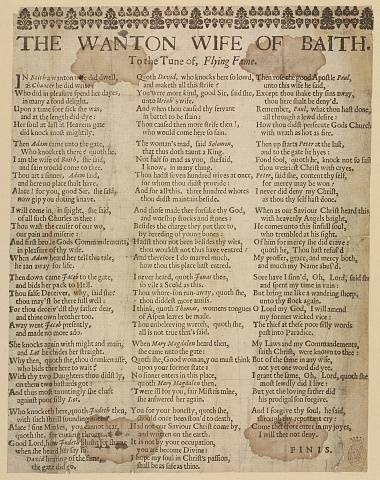 THE WANTON WIFE OF BAITH.
To the Tune of, Flying Fame.
IN Baith a wanton wife did dwell,
as Chaucer he did write;
Who did in pleasure spend her dayes,
in many a fond delight.
Upon a time sore sick she was,
and at the length did dye;
Her soul at last at Heavens gate
did knock most mightily.
Then Adam came unto the gate,
Who knocketh there? quoth he:
I am the wife of Baith, she said,
and fain would come to thee.
Thou art a sinner, Adam said,
and here no place shalt have,
And so are you, good Sir, she said,
now gip you doting knave.
I will come in, in spight, she said,
of all such Churles as thee:
Thou wast the causer of our wo,
our pain and misery:
And first broke Gods Commandements,
in pleasure of thy wife.
When Adam heard her tell this tale,
he ran away for life.
Then down came Jacob to the gate,
and bids her pack to Hell.
Thou false Deceiver, why, said she?
thou may'st be there full well:
For thou deceiv'd thy father dear,
and thine own brother too.
Away went Jacob presently,
and made no more ado.
She knocks again with might and main,
and Lot he chides her straight.
Why then, quoth she, thou drunken asse,
who bids thee here to wait?
With thy two Daughters thou didst ly,
on them two bastards got:
And thus most tauntingly she chaft
against poor silly Lot.
Who knocketh here, quoth Judeth then,
with such shrill sounding notes?
Alace! fine Minkes, you cannot hear,
quoth she, for cutting throats.
Good Lord, how Judeth blusht for shame,
when she heard her say so.
David hearing of the same,
the gate did go.
Quoth David, who knocks here so lowd,
and maketh all this strife?
You were more kind, good Sir, said she,
unto Uriah's wife.
And when thou caused thy servant
in battel to be slain;
Thou caused then more strife then I,
who would come here so fain.
The woman's mad, said Solomon,
that thus doth taunt a King.
Not half so mad as you, she said,
I know, in many a thing.
Thou hadst seven hundred wives at once,
for whom thou didst provide:
And for all this, three hundred whores
thou didst maintain beside.
And those made thee forsake thy God,
and worship stocks and stones:
Besides the charge they put thee to,
by breeding of young bones:
Hadst thou not been besides thy wits,
thou wouldst not thus have ventred:
And therefore I do marvel much,
how thou this place hast entred.
I never heard, quoth Jonas then,
so vile a Scold as this.
Thou whore-son run-away, quoth she,
thou diddest more amiss.
I think, quoth Thomas, womens tongues
of Aspen leaves be made.
Thou unbelieving wretch, quoth she,
all is not true that's said.
When Mary Magdalen heard then,
she came unto the gate:
Quoth she, Good woman, you must think
upon your former state:
No sinner enters in this place,
quoth Mary Magdalen then,
'Twere ill for you, fair Mistris mine,
she answered her again.
You for your honesty, quoth she,
should once been ston'd to death,
Had not our Saviour Christ come by,
and written on the earth.
It is not by your occupation,
you are become Divine:
I hope my soul in Christ's passion,
shall be as safe as thine.
Then rose the good Apostle Paul,
unto this wife he said,
Except thou shake thy sins away,
thou here shalt be deny'd.
Remember, Paul, what thou hast done,
all through a lewd desire:
How thou didst persecute Gods Church
with wrath as hot as fire.
Then up starts Peter at the last,
and to the gate he hyes:
Fond fool, quoth he, knock not so fast,
thou weariest Christ with cryes.
Peter, said she, content thy self,
for mercy may be won:
I never did deny my Christ,
as thou thy self hast done.
When as our Saviour Christ heard this
with heavenly Angels bright,
He comes unto this sinfull soul,
who trembled at his sight.
Of him for mercy she did crave;
quoth he, Thou hast refus'd
My proffer, grace, and mercy both,
and much my Name abus'd.
Sore have I sinn'd, Oh, Lord, said she,
and spent my time in vain:
But bring me like a wandring sheep,
unto thy flock again.
O Lord my God, I will amend
my former wicked vice:
The thief at these poor silly words
past into Paradice.
My Laws and my Commandements,
saith Christ, were known to thee:
But of the same in any wise,
not yet one word did yee.
I grant the same, Oh, Lord, quoth she
most lewdly did I live:
But yet the loving father did
his prodigal son forgive.
And I forgive thy soul, he said,
through thy repentant cry:
Come therefore enter in my joyes,
I will thee not deny.
FINIS.